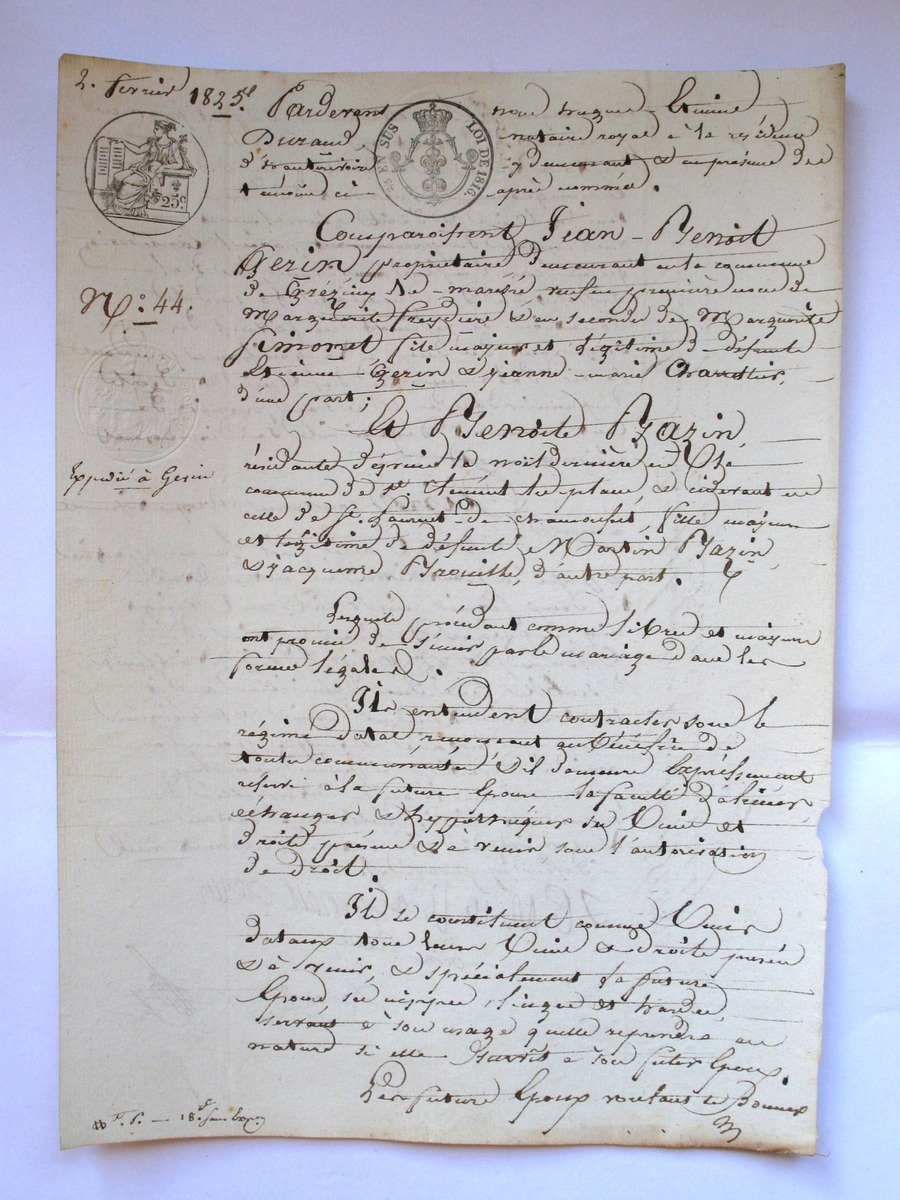 2. février 1825.
Pardevant nous Etienne
Durand, notaire royal à la résidence
d'hauterivoire y demeurant & en présence des
témoins ci après nommés.
EN SUS LOI DE 1816
25c
Comparoissent Jean-Benoit
Gerin propriétaire demeurant en la commune
de Grézieu le-marché veuf en premières noces de
Marguerite freydière & en secondes de Marguerite
Simonet fils majeur et légitime de défunts
Etienne Gerin & jeanne-marie Charetier,
d'une part;
N.o 44.
Et Benoite Bazin
résidante depuis la noël dernière en
commune de St. Clément les places, & cidevant en
celle de St. Laurent-de chamousset, fille majeure
et légitime de défunts Martin Bazin
& jacqueme Brouille, d'autre part.
Expédié à Gerin
Lesquels procédant comme libres et majeurs
ont promis de s'unir par le mariage dans les
formes légales.
Ils entendent contracter sous le
régime dotal renonçant au bénéfice de
toute communauté & il demeure Expréssément
réservé à la future Epouse la faculté d'aliéner
échanger & hypothéquer ses biens et
droits présens & à venir sous l'autorisation
de droit.
Ils se constituent comme biens
dotaux tous leurs biens & droits présens
& à venir, & spécialement la future
Epouse, ses nippes, linges et hardes
servant à son usage qu'elle reprendra en
nature si elle survit à son futur Epoux.
Les futurs Epoux voulant se Donner